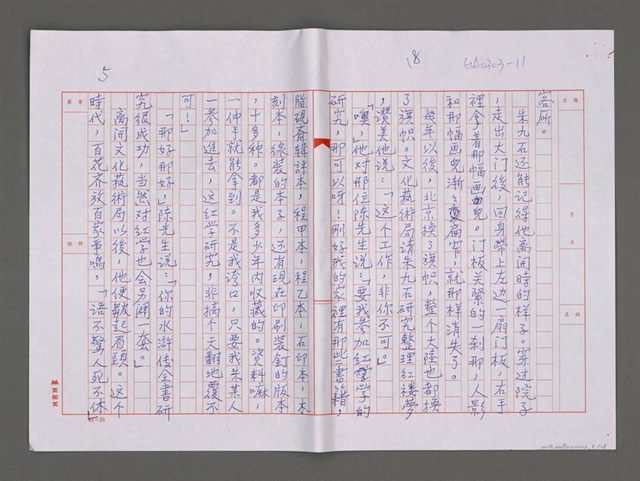 18
GA0303-11
客所。
朱九石还能记得他离開時的样子。穿过院子
，走出大门後，回身帶上左边一扇门板，右手
裡拿着那幅画兜。门板关緊的一刹那，人影
和那幅画兜漸漸变扁窄，就那样消失了。
幾年以後，北京換了旗帜，整个大陸也都換
了旗帜。文化藝術局請朱九石研究整理红楼夢
，讚美他说：「这个工作，非你不可。」
「嘿，」他对那位陈先生说：「要我参加红学的
研究，那可以呀！刚好我的家裡有那些書籍，
5
脂砚斎辑评本，程甲本，程乙本，石印本，木
刻本，線装的本子，还有現在印刷装釘的版本
，十多种。都是我多少年内收藏的。資料嘛，
一伸手就能拿到。不是我誇口，只要我朱某人
一参加進去，这红学研究，非搞个天翻地覆不
可！」
「那好那好，」陈先生说：「你的水滸传全書研
究很成功，当然对红学也会另開一套。」
离開文化藝術局以後，他便皺起眉頭。这个
時代，百花齐放百家争鳴，「语不驚人死不休」